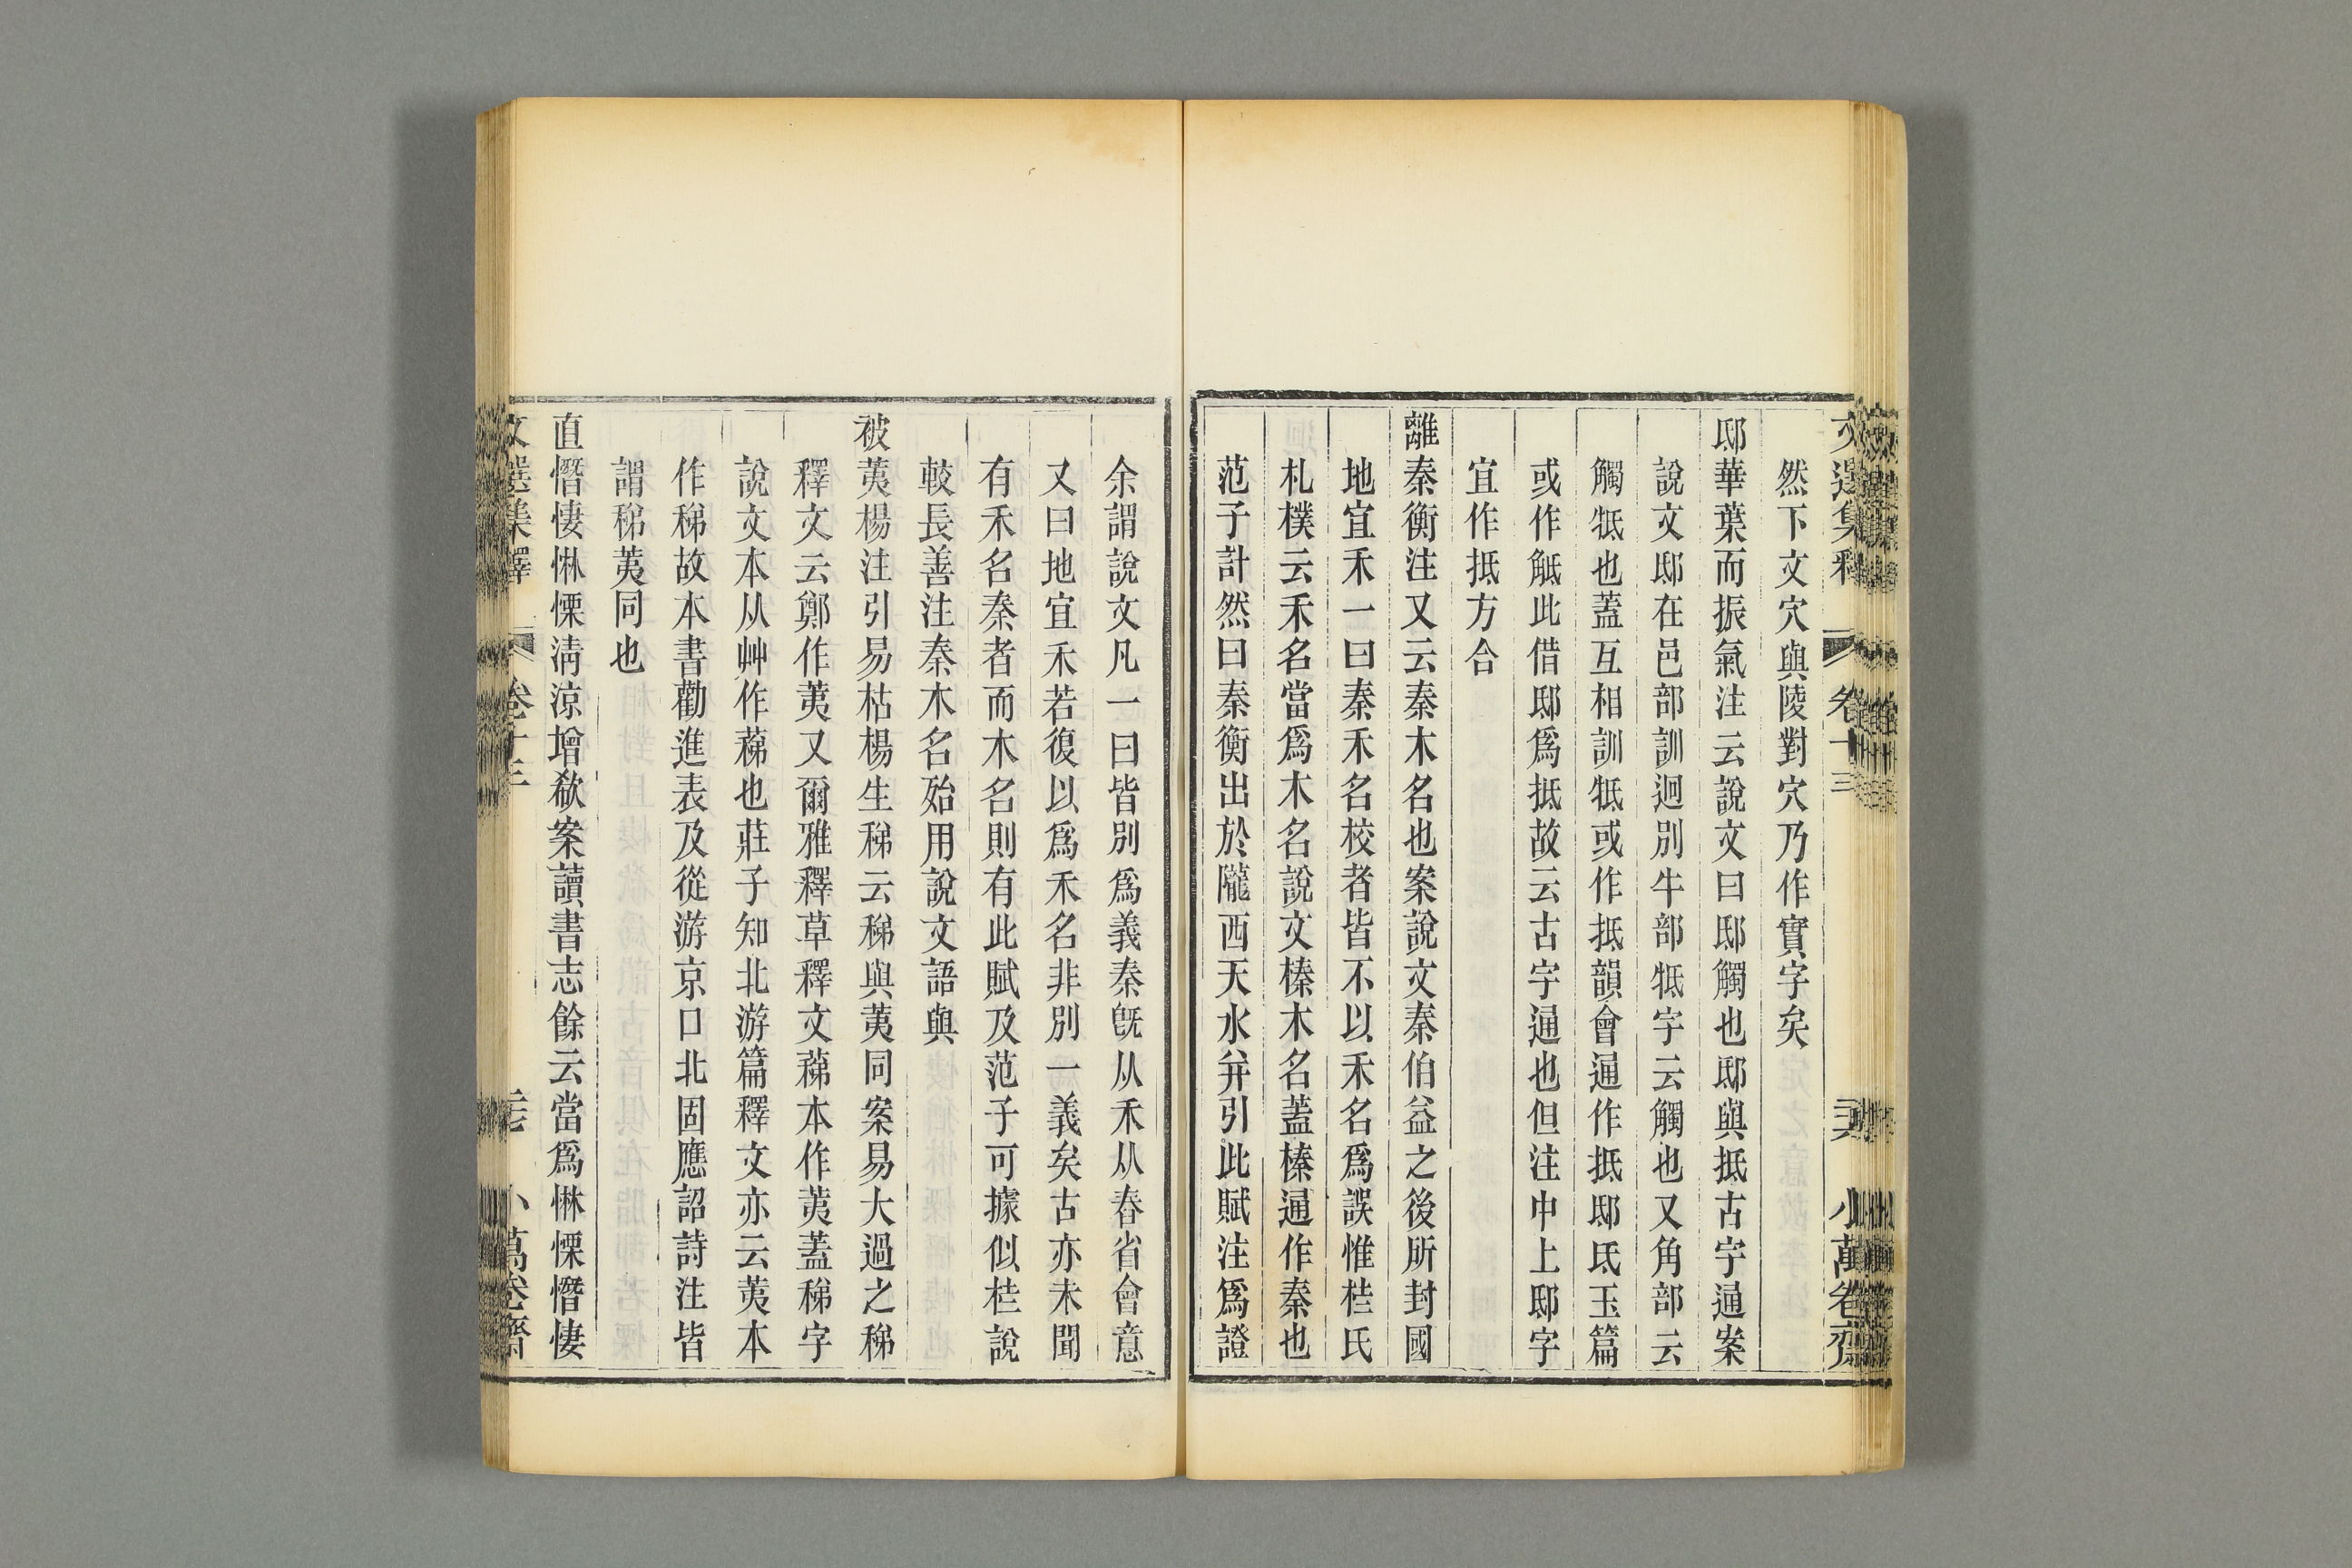 文選集釋 卷十三 三六 小萬卷齋
然下文穴與陵對穴乃作實字矣
邸華葉而振氣注云說文曰邸觸也邸與抵古字通案
說文邸在邑部訓迥別牛部牴字云觸也又角部云
觸牴也蓋互相訓牴或作抵韻會通作抵邸氐玉篇
或作觝此借邸爲抵故云古字通也但注中上邸字
宜作抵方合
離秦衡注又云秦木名也案說文秦伯益之後所封國
地宜禾一曰秦禾名校者皆不以禾名爲誤惟桂氏
札樸云禾名當爲木名說文榛木名蓋榛通作秦也
范子計然曰秦衡出於隴西天水并引此賦注爲證
余謂說文凡一曰皆別爲義秦旣从禾从舂省會意
又曰地宜禾若復以爲禾名非別一義矣古亦未聞
有禾名秦者而木名則有此賦及范子可據似桂說
較長善注秦木名殆用說文語與
被荑楊注引易枯楊生稊云稊與荑同案易大過之稊
釋文云鄭作荑又爾雅釋草釋文蕛本作荑蓋稊字
說文本从艸作蕛也莊子知北游篇釋文亦云荑本
作稊故本書勸進表及從游京口北固應詔詩注皆
謂稊荑同也
直憯悽惏慄淸涼增欷案讀書志餘云當爲惏慄憯悽
文選集釋 卷十三 三七 小萬卷齋